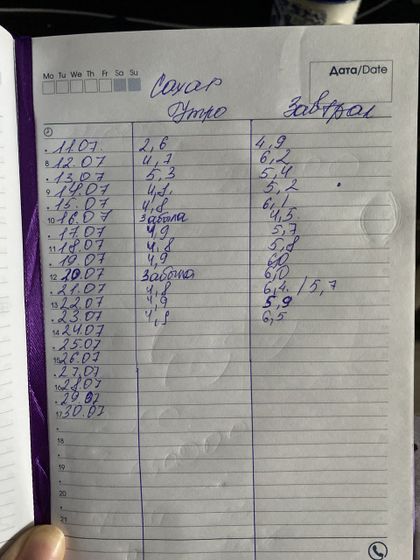 Mo Tu We Th Fr Sa Su
Дата/Date
Сахар
Утро Завтрак
11.07 2,6 4,9
8 12.07 4,7 6,2
13.07 5,3 5,4
9 14.07 4,9. 5,2
15.07 4,8 6,1
10 16.07 Забыла 4,5
17.07 4,9 5,7
11 18.07 4,8 5,8
19.07 4,9 6,0
12 20.07 Забыла 6,0
21.07 4,8 6,4 / 5,7
13 22.07 4,9 5,9
23.07 4,9 6,5
14 24.07
25.07
15 26.07
27.07
16 28.07
29.07
17 30.07
18
19
20
21